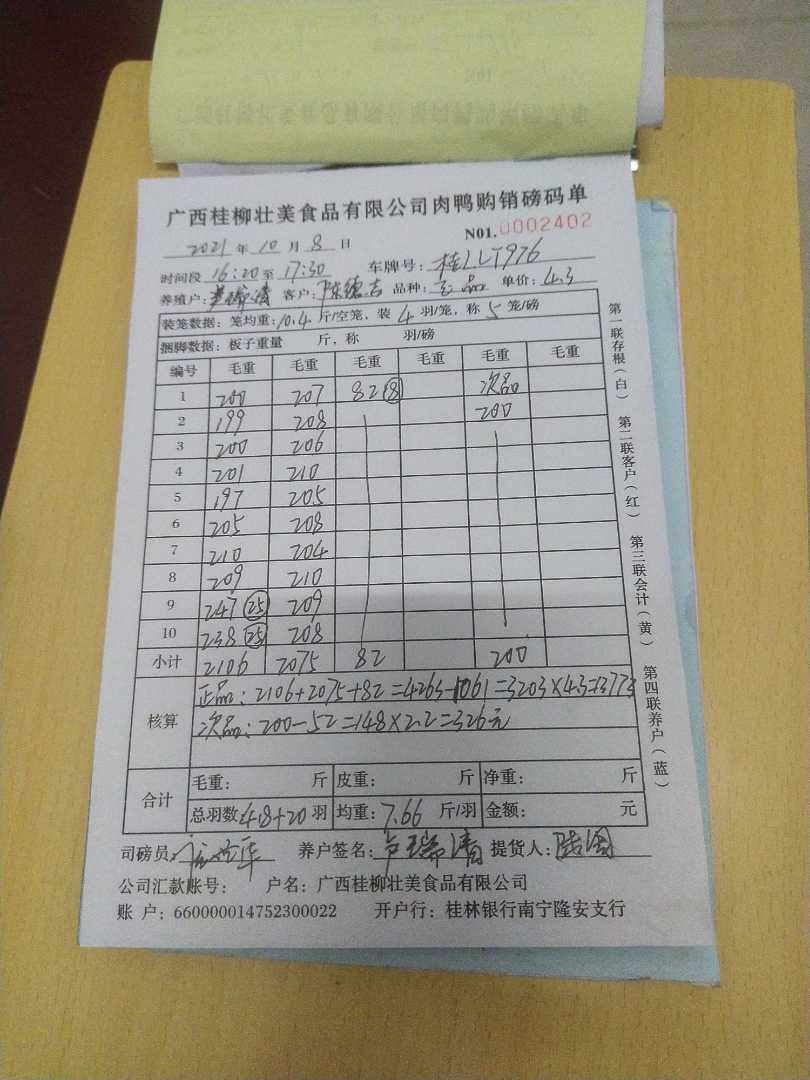 广西桂柳壮美食品有限公司肉鸭购销磅码单
2021 年 10 月 8 日 N01.0002402
时间段 16:20 至 17:30 车牌号: 桂LLT976
养殖户: 客户: 陈德吉 品种: 品 单价: 4.3
装笼数据: 笼均重: 10.4 斤/空笼, 装 4 羽/笼, 称 5 笼/磅
捆脚数据: 板子重量 斤, 称 羽/磅
编号 毛重 毛重 毛重 毛重 毛重 毛重
1 200 207 82 (8) 次品
2 199 208 200
3 200 206
4 201 210
5 197 205
6 205 208
7 210 204
8 209 210
9 247 (25) 209
10 238 (25) 208
小计 2106 2075 82 200
核算 正品: 2106+2075+82=4263-1061=3203×4.3=13773
次品: 200-52=148×2.2=326元
合计 毛重: 斤 皮重: 斤 净重: 斤
总羽数 418+20 羽 均重: 7.66 斤/羽 金额: 元
司磅员: 养户签名: 提货人:
公司汇款账号: 户名: 广西桂柳壮美食品有限公司
账 户: 660000014752300022 开户行: 桂林银行南宁隆安支行
第一联存根(白) 第二联客户(红) 第三联会计(黄) 第四联养户(蓝)